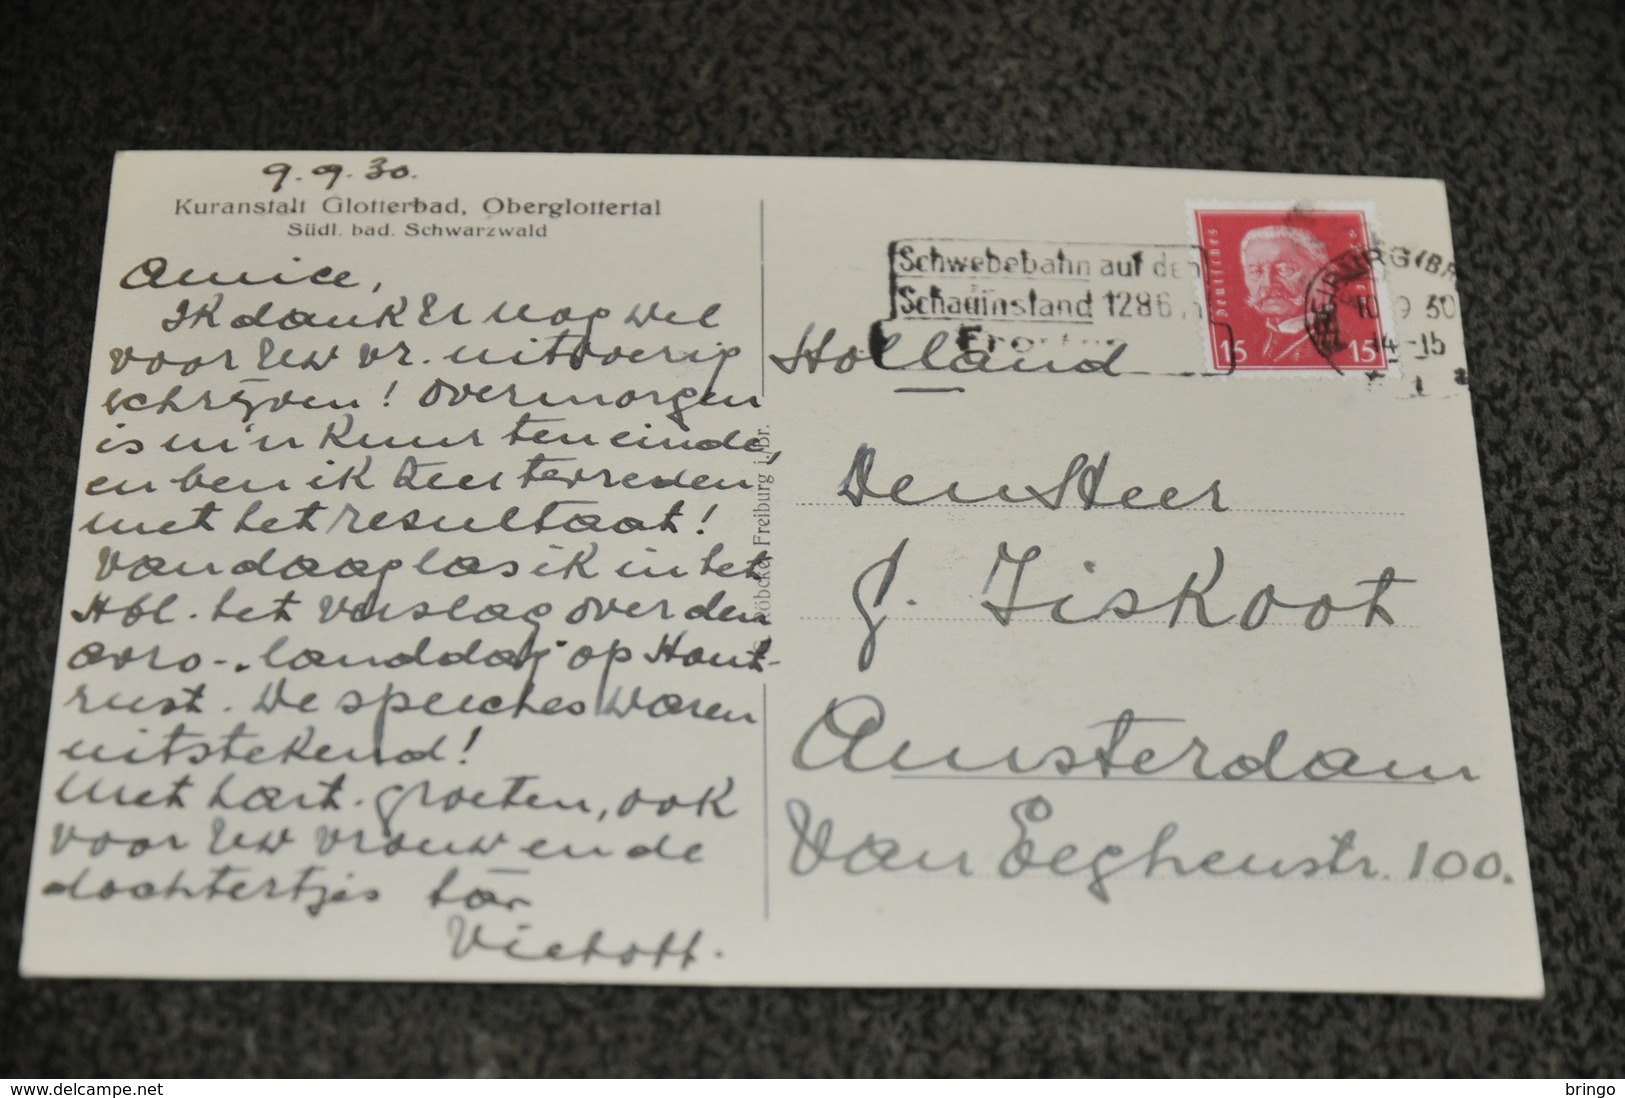 9.9.30.
Kuranstalt Glotterbad, Oberglottertal
Südl. bad. Schwarzwald
Amice,
Ik dank U nog wel
voor Uw vr. uitvoerig
schrijven! Overmorgen
is m'n Kuur ten einde,
en ben ik zeer tevreden
met het resultaat!
Vandaag las ik in het
Hbl. het verslag over den
avro-"landdag" op Hout-
rust. De speeches waren
uitstekend!
Met hart. groeten, ook
voor Uw vrouw en de
dochtertjes
Röbcke, Freiburg i. Br.
Schwebebahn auf den
Schauinsland 1286 m
Deutsches
15 15
FREIBURG (BR
10 9 30
14-15
Holland
Den Heer
J. Tiskoot
Amsterdam
Van Eeghenstr. 100.
https://www.delcampe.net
bringo